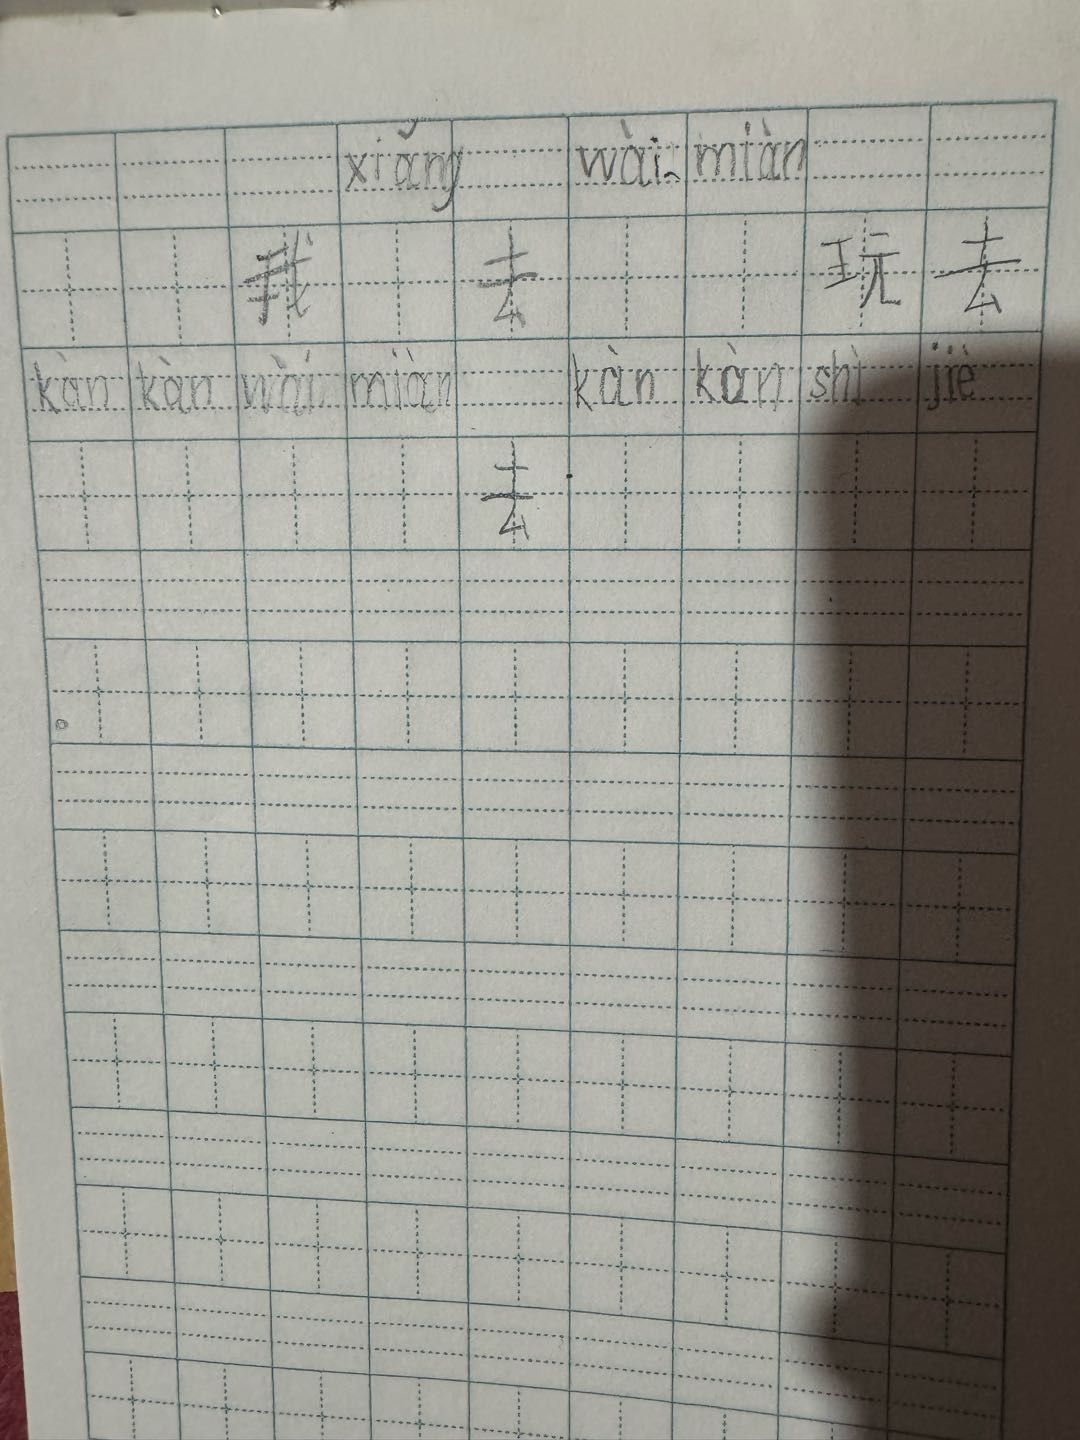 xiǎng wài miàn
我 去 玩 去
kàn kàn wài miàn kàn kàn shì jiè
去
。